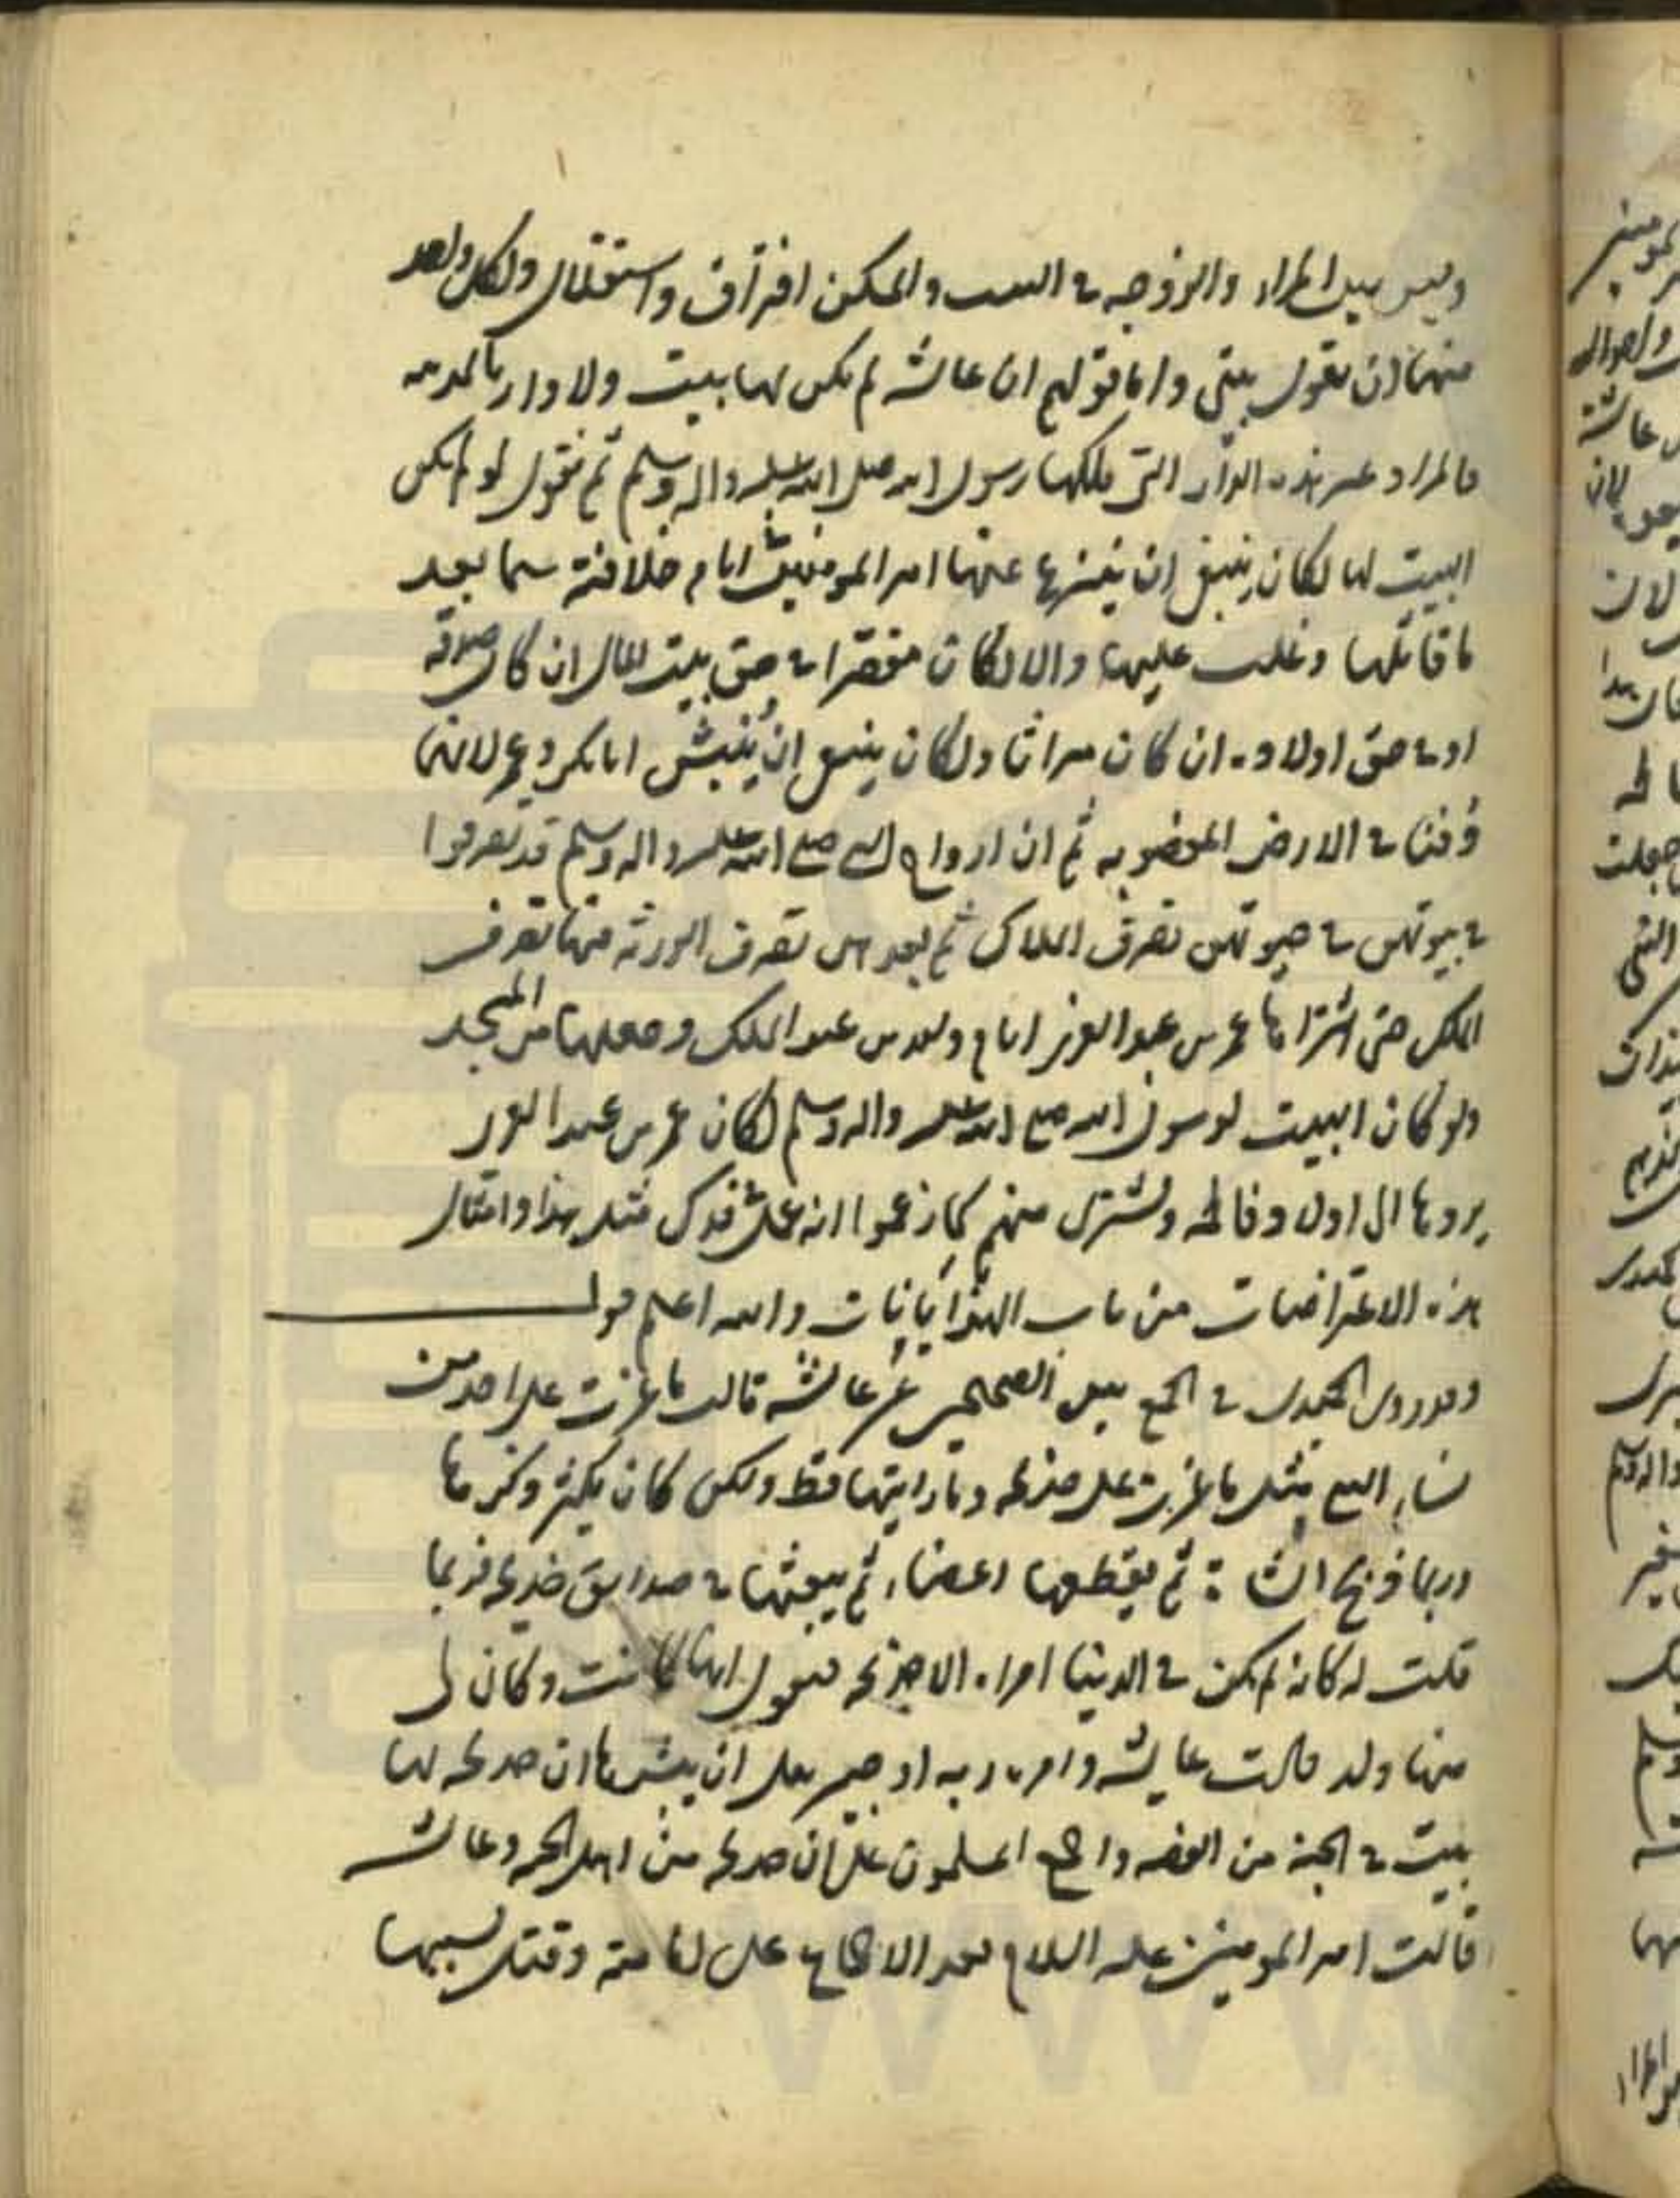 وليس بين المراء والزوجه في البيت والمسكن افتراق واستقلال ولكل واحد
منهما ان يقول بيتي واما قولهم ان عائشه لم يكن لها بيت ولا دار بالمدينه
فالمراد غير هذه الدار التي ملكها رسول الله صلى الله عليه واله وسلم ثم نقول لو لم يكن
البيت لها لكان ينبغي ان ينزع عنها امير المومنين ايام خلافته سيما بعد
ما قاتلها وغلب عليها والا لكان مقصرا في حق بيت المال ان كان صدقه
او في حق اولاده ان كان ميراثا ولكان ينبغي ان ينبش ابا بكر وعمر لانهما
دفنا في الارض المغضوبه ثم ان ازواج النبي صلى الله عليه واله وسلم قد تصرفوا
في بيوتهن في حيوتهن تصرف الملاك ثم بعدهن تصرف الورثه منها تصرف
الملك حتى اشتراها عمر بن عبد العزيز ايام وليد بن عبد الملك وجعلها من المسجد
ولو كان البيت لرسول الله صلى الله عليه واله وسلم لكان عمر بن عبد العزيز
يردها الى اولاد فاطمه ويشتري منهم كما زعموا انه فدك فمثل هذا وامثال
هذه الاعتراضات من باب الهذايانات والله اعلم قول
وقد روى الحميدي في الجمع بين الصحيحين عن عائشه قالت ما غرت على احد من
نساء النبي مثل ما غرت على خديجه وما رايتها قط ولكن كان يكثر ذكرها
وربما ذبح الشاة ثم يقطعها اعضاء ثم يبعثها في صدايق خديجه فربما
قلت له كانه لم يكن في الدنيا امراه الا خديجه فيقول انها كانت وكان لي
منها ولد قالت عايشه وامره ربه او جبريل ان يبشرها ان خديجه لها
بيت في الجنه من الفضه واجمع المسلمون على ان خديجه من اهل الجنه وعائشه
قاتلت امير المومنين عليه السلام بعد الاجماع على امامته وقتل بسببها